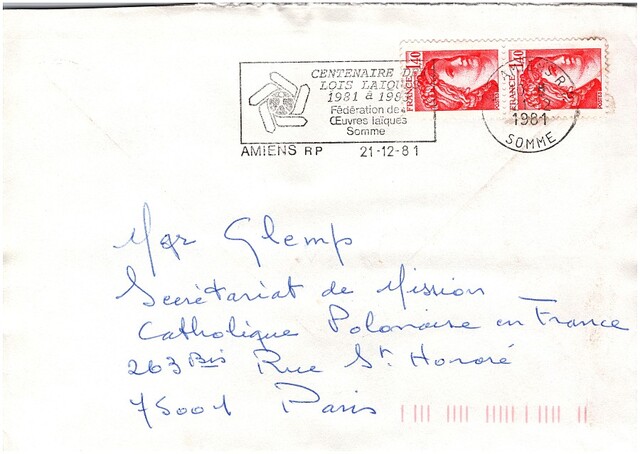 CENTENAIRE D
LOIS LAIQU
1981 à 198
Fédération de
Œuvres laïques
Somme
AMIENS RP 21-12-81
FRANCE 1,40
FRANCE 1,40
1981
SOMME
Mgr Glemp
Secrétariat de Mission
Catholique Polonaise en France
263 Bis Rue St Honoré
75001 Paris